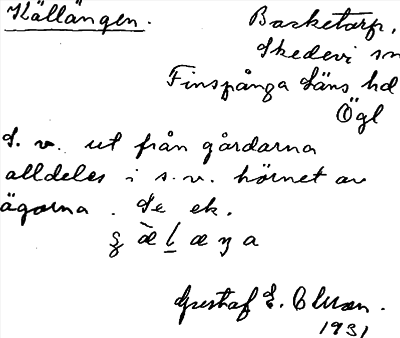 Källängen.
Basketarp,
Skedevi sn
Finspånga läns hd
Ögl
S. v. ut från gårdarna
alldeles i s.v. hörnet av
ägorna. Se ek.
Gustaf E.
1931